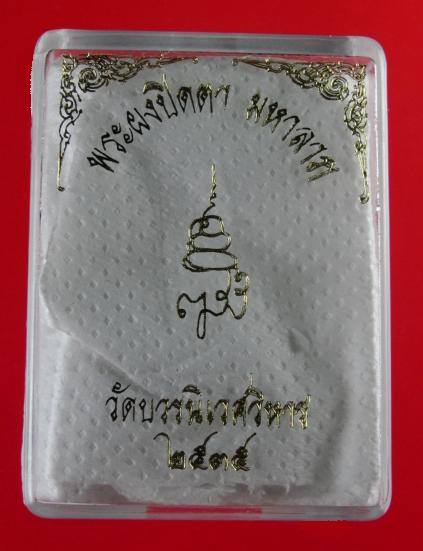 พระผงปิดตา มหาลาภ
วัดบวรนิเวศวิหาร
๒๕๓๕